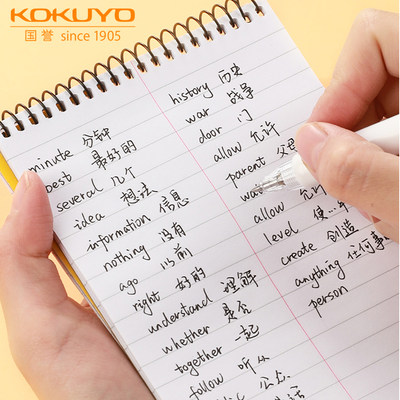 KOKUYO
国誉 since 1905
minute 分钟
best 最好的
several 几个
idea 想法
information 信息
nothing 没有
ago 以前
right 好的
understand 理解
whether 是否
together 一起
follow 听从
公众
history 历史
war 战争
door 门
allow 允许
parent 父母
wa
allow 允许
level
create 创造
anything 任何事
person